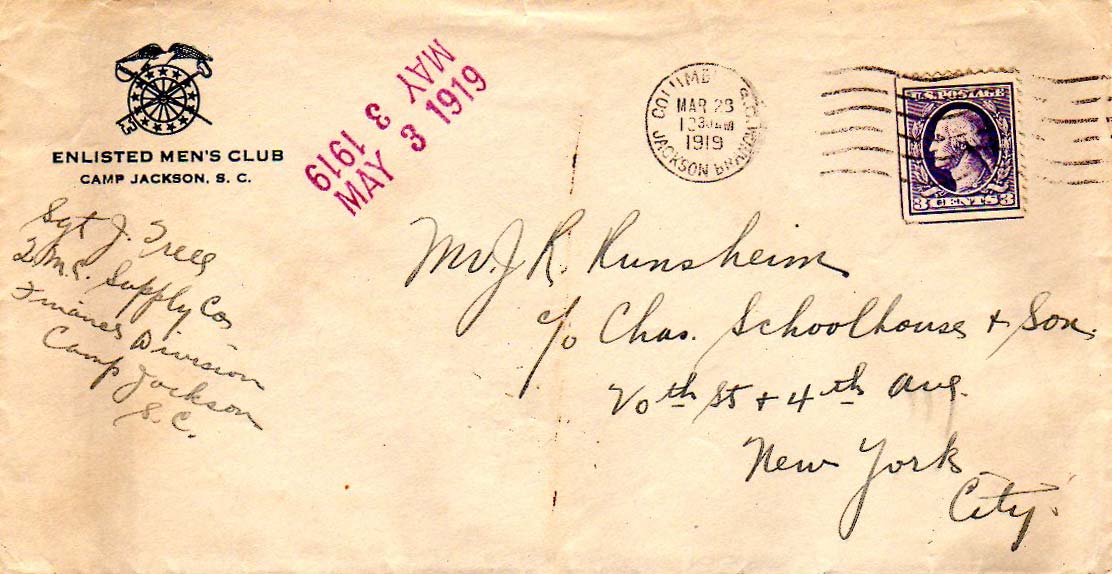 ENLISTED MEN'S CLUB
CAMP JACKSON, S. C.
Sgt J. Trees
Q.M.C. Supply Co.
Finance Division
Camp Jackson
S. C.
MAY 3 1919
MAY 3 1919
COLUMBI S.C.
MAR 23
1230AM
1919
JACKSON BRANCH
U.S. POSTAGE
3 CENTS 3
Mr. J R. Runsheim
c/o Chas. Schoolhouse & Son.
20th St & 4th Ave.
New York
City.